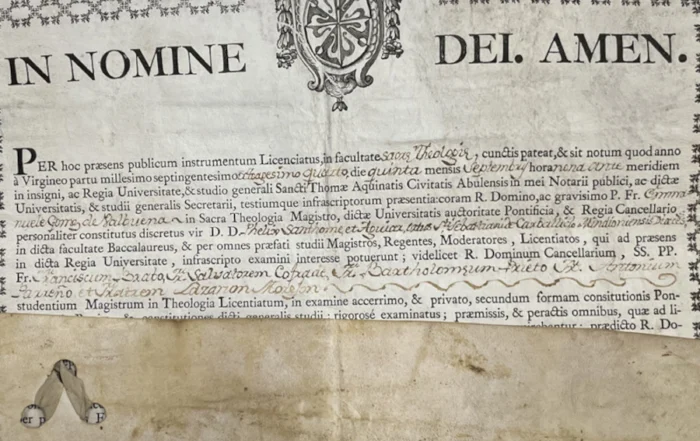 IN NOMINE DEI. AMEN.
PER hoc præsens publicum instrumentum Licenciatus, in facultate Sacræ Theologiæ, cunctis pateat, & sit notum quod anno
à Virgineo partu millesimo septingentesimo octogesimo quarto, die quinta mensis Septembris hora nona ante meridiem
in insigni, ac Regia Universitate, & studio generali Sancti Thomæ Aquinatis Civitatis Abulensis in mei Notarii publici, ac dictæ
Universitatis, & studii generalis Secretarii, testiumque infrascriptorum præsentia: coram R. Domino, ac gravisimo P. Fr. Emma
nuele Gom. de Balbuena in Sacra Theologia Magistro, dictæ Universitatis auctoritate Pontificia, & Regia Cancellario
personaliter constitutus discretus vir D. D.
in dicta facultate Baccalaureus, & per omnes præfati studii Magistros, Regentes, Moderatores, Licentiatos, qui ad præsens
in dicta Regia Universitate, infrascripto examini interesse potuerunt; videlicet R. Dominum Cancellarium, SS. PP.
Fr. Franciscum Fr. Salvatorem Fr. Bartholomæum Prieto Fr. Antonium
et Fratrem Lazarum
studentium Magistrum in Theologia Licentiatum, in examine accerrimo, & privato, secundum formam consitutionis Pon-
& constitutiones dicti generalis studii: rigorosé examinatus; præmissis, & peractis omnibus, quæ ad li-
prædicto R. Do-
er p
F